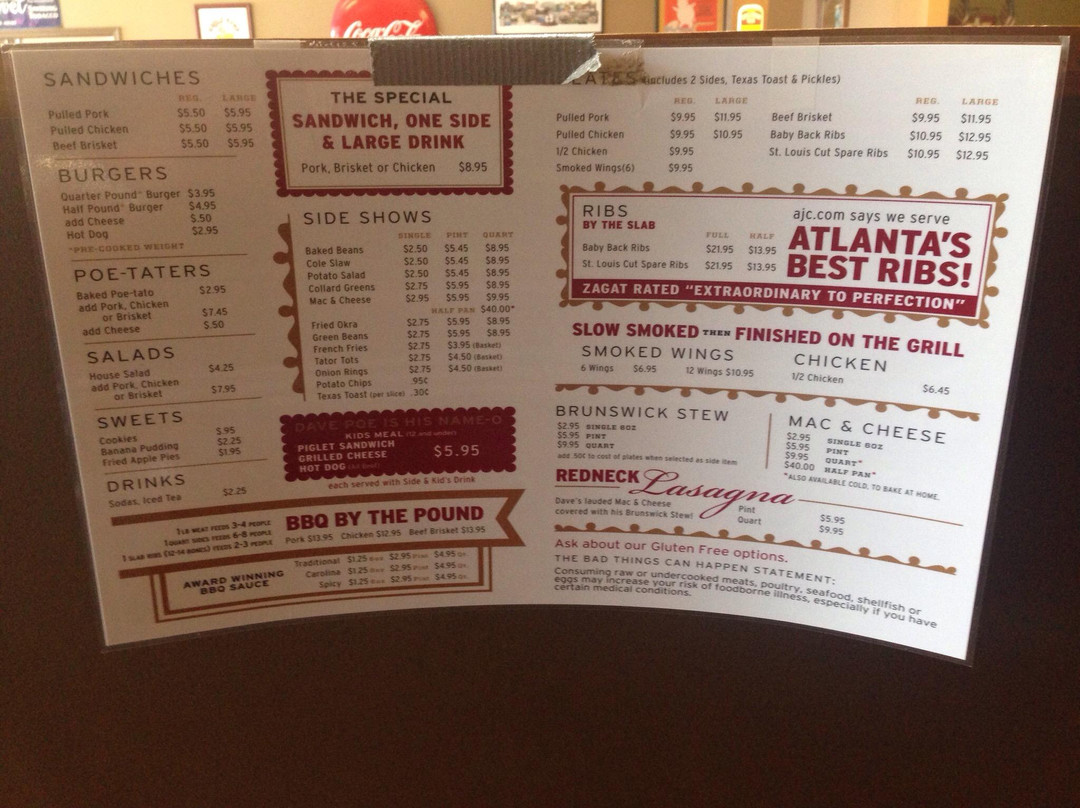 Coca-Cola
SANDWICHES
REG. LARGE
Pulled Pork $5.50 $5.95
Pulled Chicken $5.50 $5.95
Beef Brisket $5.50 $5.95
BURGERS
Quarter Pound* Burger $3.95
Half Pound* Burger $4.95
add Cheese $.50
Hot Dog $2.95
*PRE-COOKED WEIGHT
POE-TATERS
Baked Poe-tato $2.95
add Pork, Chicken
or Brisket $7.45
add Cheese $.50
SALADS
House Salad $4.25
add Pork, Chicken
or Brisket $7.95
SWEETS
Cookies $.95
Banana Pudding $2.25
Fried Apple Pies $1.95
DRINKS
Sodas, Iced Tea $2.25
THE SPECIAL
SANDWICH, ONE SIDE
& LARGE DRINK
Pork, Brisket or Chicken $8.95
SIDE SHOWS
SINGLE PINT QUART
Baked Beans $2.50 $5.45 $8.95
Cole Slaw $2.50 $5.45 $8.95
Potato Salad $2.50 $5.45 $8.95
Collard Greens $2.75 $5.95 $8.95
Mac & Cheese $2.95 $5.95 $9.95
HALF PAN $40.00*
Fried Okra $2.75 $5.95 $8.95
Green Beans $2.75 $5.95 $8.95
French Fries $2.75 $3.95 (Basket)
Tator Tots $2.75 $4.50 (Basket)
Onion Rings $2.75 $4.50 (Basket)
Potato Chips .95¢
Texas Toast (per slice) .30¢
DAVE POE IS HIS NAME-O
KIDS MEAL (12 and under)
PIGLET SANDWICH
GRILLED CHEESE
HOT DOG
$5.95
each served with Side & Kid's Drink
1 LB MEAT FEEDS 3-4 PEOPLE
1 QUART SIDES FEEDS 6-8 PEOPLE
1 SLAB RIBS (12-14 BONES) FEEDS 2-3 PEOPLE
BBQ BY THE POUND
Pork $13.95 Chicken $12.95 Beef Brisket $13.95
AWARD WINNING
BBQ SAUCE
Traditional $1.25 $2.95 Pint $4.95 Qt.
Carolina $1.25 $2.95 Pint $4.95 Qt.
Spicy $1.25 $2.95 Pint $4.95 Qt.
(includes 2 Sides, Texas Toast & Pickles)
REG. LARGE
Pulled Pork $9.95 $11.95
Pulled Chicken $9.95 $10.95
1/2 Chicken $9.95
Smoked Wings(6) $9.95
REG. LARGE
Beef Brisket $9.95 $11.95
Baby Back Ribs $10.95 $12.95
St. Louis Cut Spare Ribs $10.95 $12.95
RIBS
BY THE SLAB
FULL HALF
Baby Back Ribs $21.95 $13.95
St. Louis Cut Spare Ribs $21.95 $13.95
ajc.com says we serve
ATLANTA'S
BEST RIBS!
ZAGAT RATED "EXTRAORDINARY TO PERFECTION"
SLOW SMOKED THEN FINISHED ON THE GRILL
SMOKED WINGS
6 Wings $6.95 12 Wings $10.95
CHICKEN
1/2 Chicken $6.45
BRUNSWICK STEW
$2.95 SINGLE 8OZ
$5.95 PINT
$9.95 QUART
add .50¢ to cost of plates when selected as side item
MAC & CHEESE
$2.95 SINGLE 8OZ
$5.95 PINT
$9.95 QUART*
$40.00 HALF PAN*
*ALSO AVAILABLE COLD, TO BAKE AT HOME.
REDNECK Lasagna
Dave's lauded Mac & Cheese
covered with his Brunswick Stew!
Pint $5.95
Quart $9.95
Ask about our Gluten Free options.
THE BAD THINGS CAN HAPPEN STATEMENT:
Consuming raw or undercooked meats, poultry, seafood, shellfish or
eggs may increase your risk of foodborne illness, especially if you have
certain medical conditions.